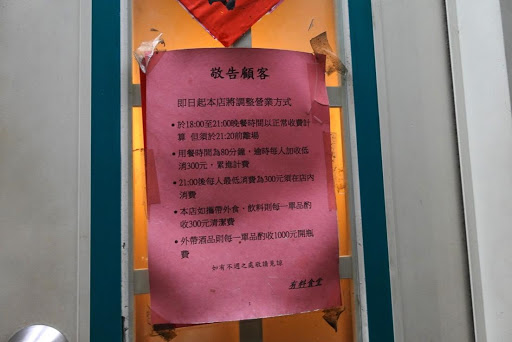 敬告顧客
即日起本店將調整營業方式
•於18:00至21:00晚餐時間以正常收費計
算 但須於21:20前離場
•用餐時間為80分鐘，逾時每人加收低
消300元，累進計費
•21:00後每人最低消費為300元須在店內
消費
•本店如攜帶外食、飲料則每一單品酌
收300元清潔費
•外帶酒品則每一單品酌收1000元開瓶
費
如有不週之處敬請見諒
有料食堂